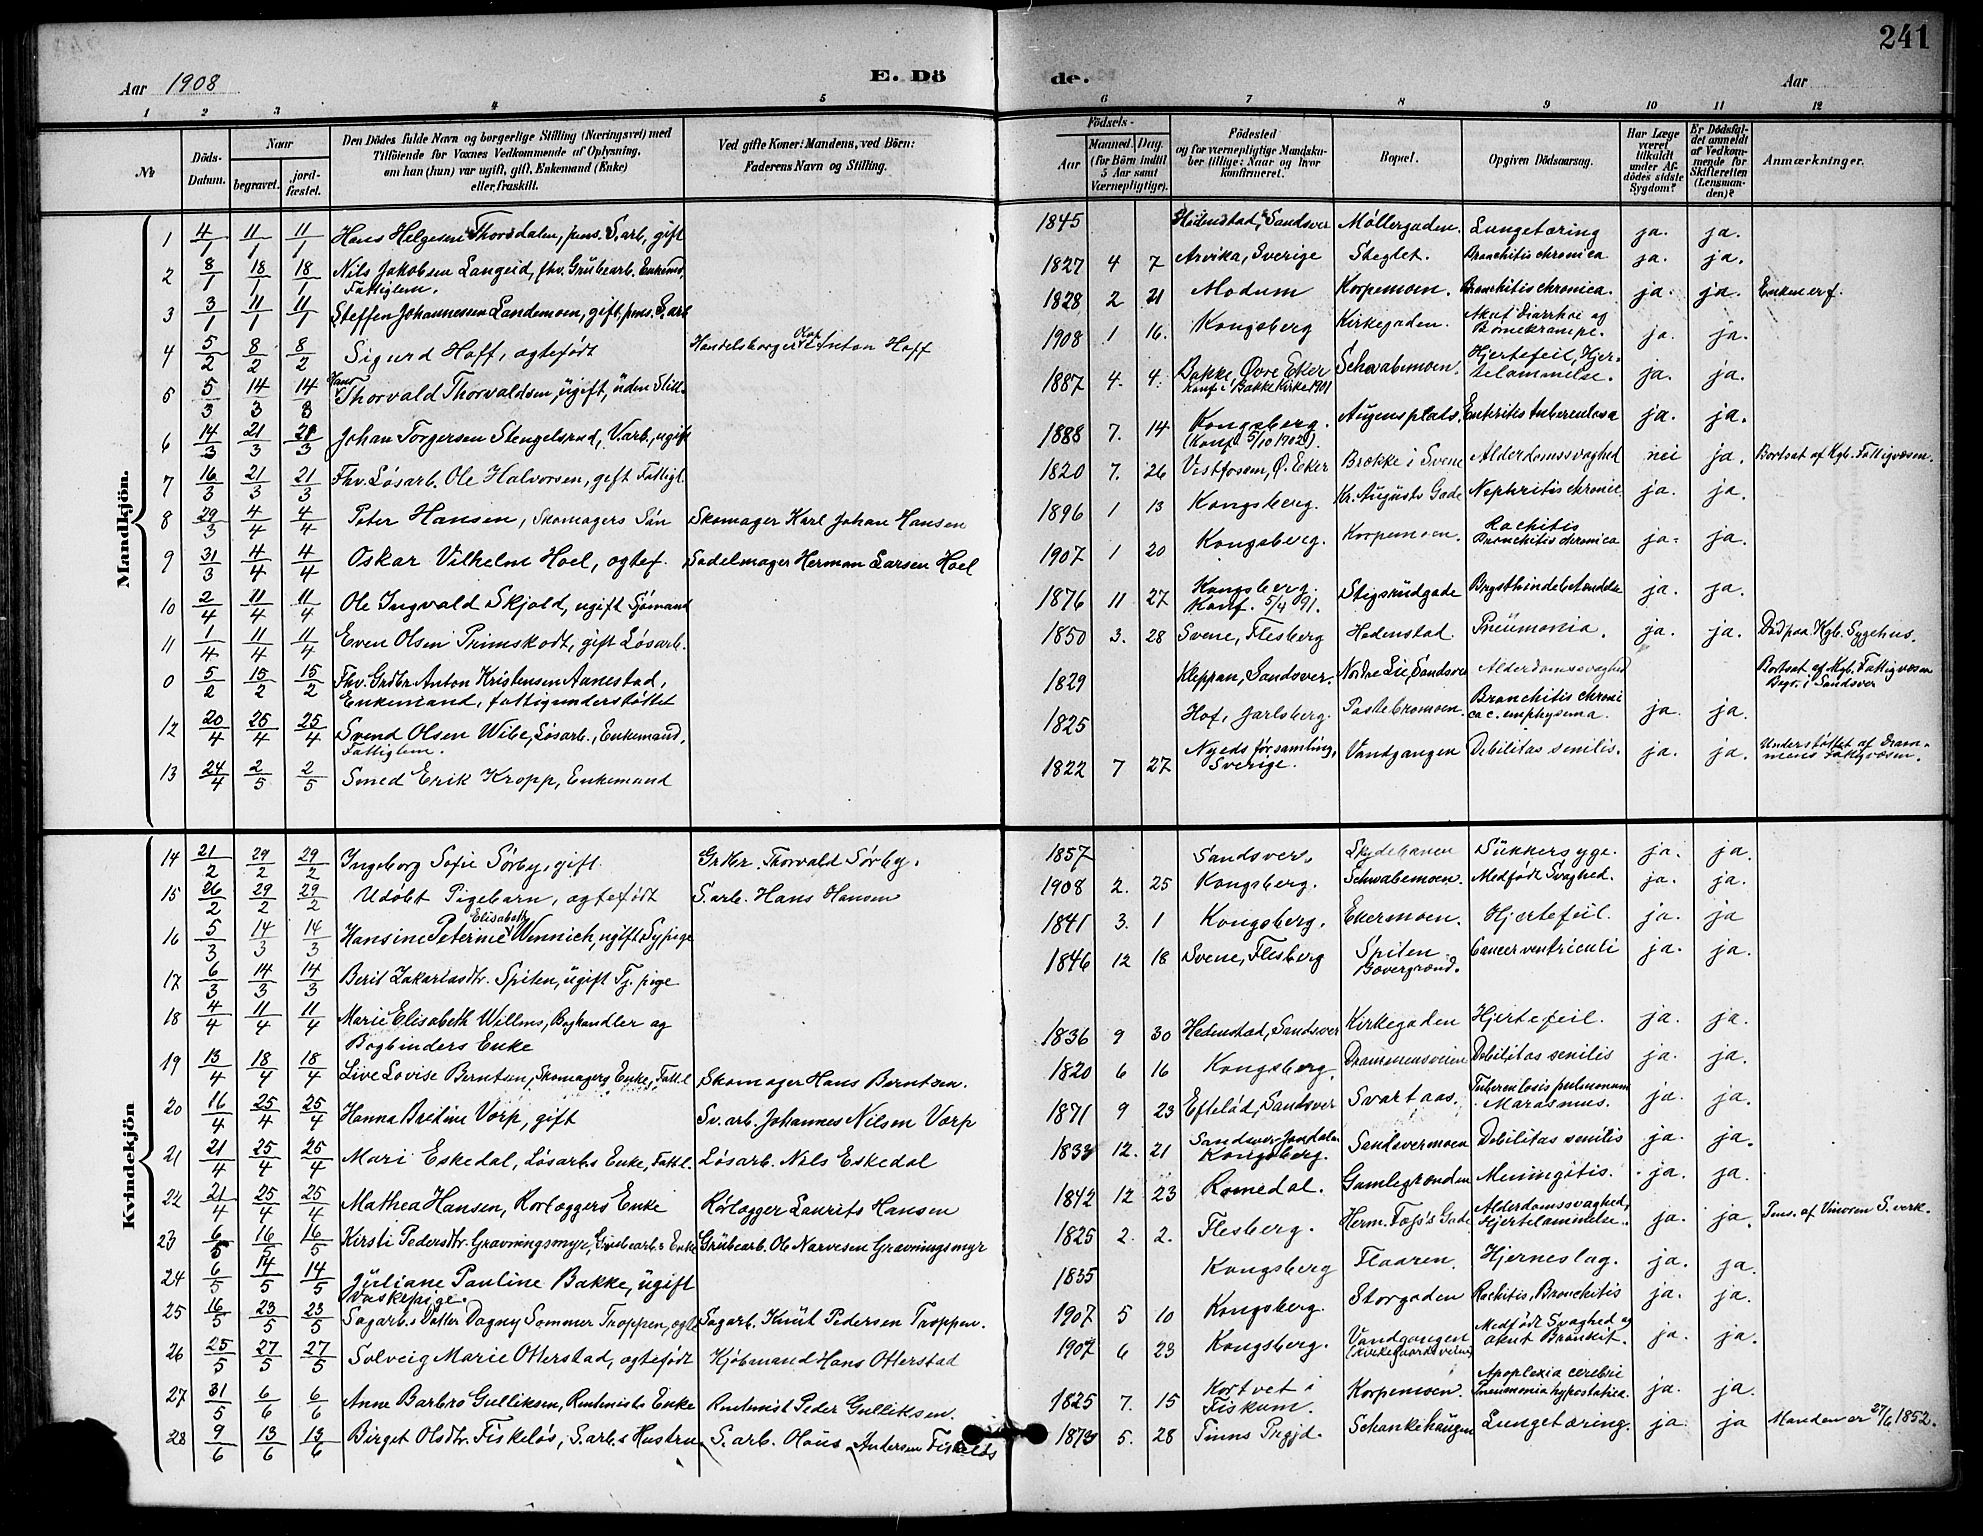 241
Aar 1908
E. Dö
de.
Aar
1 2 3 4 5 6 7 8 9 10 11 12
No
Döds-Datum.
Naar
begravet.
jord-fæstet.
Den Dödes fulde Navn og borgerlige Stilling (Næringsvei) med
Tilföiende for Voxnes Vedkommende af Oplysning,
om han (hun) var ugift, gift, Enkemand (Enke)
eller fraskilt.
Ved gifte Koner: Mandens, ved Börn:
Faderens Navn og Stilling.
Födsels-
Aar
Maaned. Dag.
(for Börn indtil 5 Aar samt Værnepligtige).
Födested
og for værnepligtige Mandskaber tillige: Naar og hvor konfirmeret.
Bopæl.
Opgiven Dödsaarsag.
Har Læge været tilkaldt under Afdödes sidste Sygdom?
Er Dödsfaldet anmeldt af Vedkommende for Skifteretten (Lensmanden)?
Anmærkninger.
Mandkjön.
1 4/1 11/1 11/1 Hans Helgesen Thorsdalen, pens. S.arb, gift 1845 Hedenstad, Sandsver Møllergaden. Lungetæring ja. ja.
2 8/1 18/1 18/1 Nils Jakobsen Langeid, fhv. Grubearb. Enkemd. Fattiglem. 1827 4 7 Arvika, Sverige Steglet. Bronchitis chronica ja. ja.
3 3/1 11/1 11/1 Steffen Johannessen Landemoen, gift, pens. S.arb 1828 2 21 Modum Korpemoen. Bronchitis chronica. ja. ja. Enken er f.
4 5/2 8/2 8/2 Sigurd Hoff, ægtefødt Handelsborger Olaf Anton Hoff 1908 1 16. Kongsberg Kirkegaden. Akut Diarrhoe og Børnekrampe. ja. ja.
5 5/3 14/3 14/3 Hans Thorvald Thorvaldsen, ugift, uden Still. 1887 4. 4. Bakke, Øvre Eker Konf. i Bakke Kirke 1901 Schwabemoen. Hjertefeil, Hjertelammelse. ja. ja.
6 14/3 21/3 21/3 Johan Torgersen Stengelsrud, V.arb., ugift 1888 7. 14 Kongsberg. (Konf. 5/10 1702). Augensplads. Enteritis tuberculosa ja. ja.
7 16/3 21/3 21/3 Fhv. Løsarb. Ole Halvorsen, gift Fattigl. 1820 7. 26 Vestfossen, Ø. Eker Brække i Svene Alderdomssvaghed nei ja. Bortsat af Kgb. Fattigvæsen.
8 29/3 4/4 4/4 Peter Hansen, Skomagers Søn Skomager Karl Johan Hansen 1896 1 13 Kongsberg. Kr. Augusts Gade Nephritis chronic ja. ja.
9 31/3 4/4 4/4 Oskar Vilhelm Hoel, ægtef. Sadelmager Herman Larsen Hoel 1907 1 20 Kongsberg. Korpemoen. Rachitis Bronchitis chronica ja. ja.
10 2/4 11/4 11/4 Ole Ingvald Skjold, ugift Sjømand 1876 11 27 Kongsberg. Konf. 5/4 91. Stigsrudgade Brysthindebetændelse ja. ja.
11 1/4 11/4 11/4 Even Olsen Primskodt, gift Løsarb. 1850 3. 28 Svene, Flesberg Hedenstad Pneumonia. ja. ja. Død paa Kgb. Sygehus.
0 5/2 15/2 15/2 Fhv. Grdbr. Anton Kristensen Aanestad, Enkemand, fattigunderstøttet 1829 Kleppan, Sandsver. Nordre Lie, Sandsver Alderdomssvaghed Bortsat af Kgb. Fattigvæsen Begr. i Sandsver
12 20/4 25/4 25/4 Svend Olsen Wibe, Løsarb., Enkemand, Fattiglem. 1825 Hof, Jarlsberg. Pastebromoen. Bronchitis chronica c. emphysema. ja ja.
13 24/4 2/5 2/5 Smed Erik Kropp, Enkemand 1822 7 27 Nyeds församling, Sverige. Vandgangen Debilitas senilis. ja. ja. Understøttet af Drammens Fattigvæsen.
Kvindekjön
14 21/2 29/2 29/2 Ingeborg Sofie Sørby, gift Grdbr. Thorvald Sørby. 1857 Sandsver. Skydebanen Sukkersyge. ja. ja.
15 26/2 29/2 29/2 Udøbt Pigebarn, ægtefødt S.arb. Hans Hansen 1908 2. 25 Kongsberg. Schwabemoen. Medfødt Svaghed. ja. ja.
16 5/3 14/3 14/3 Hansine Peterine Elisabeth Wennich, ugift, Sypige 1841 3. 1 Kongsberg. Ekermoen. Hjertefeil. ja. ja
17 6/3 14/3 14/3 Berit Zakariasdtr. Spiten, ugift Tj. pige 1846 12 18 Svene, Flesberg Spiten Bævergrænd. Cancer ventriculi ja. ja.
18 4/4 11/4 11/4 Marie Elisabeth Willms, Boghandler og Bogbinders Enke 1836 9 30 Hedenstad, Sandsver Kirkegaden Hjertefeil. ja. ja.
19 13/4 18/4 18/4 Live Lovise Berntsen, Skomagers Enke, Fattl. Skomager Hans Berntsen. 1820 6 16 Kongsberg. Drammensveien Debilitas senilis ja. ja.
20 16/4 25/4 25/4 Hanna Bertine Vorp, gift Sv. arb. Johannes Nilsen Vorp 1871 9 23 Eftelød, Sandsver Svartaas. Tuberculosis pulmonum Marasmus. ja. ja.
21 21/4 25/4 25/4 Mari Eskedal, Løsarb.s Enke, Fattl. Løsarb. Nils Eskedal 1833 12. 21 Sandsver Jondalen Kongsberg. Sandsvermoen Debilitas senilis ja. ja.
22 21/4 25/4 25/4 Mathea Hansen, Rørlæggers Enke Rørlægger Laurits Hansen 1842 12 23 Romedal. Gamlegrænden Meningitis. ja. ja.
23 6/5 16/5 16/5 Kirsti Pedersdtr. Gravningsmyr, Grubearb.s Enke Grubearb. Ole Narvesen Gravningsmyr 1825 2. 2. Flesberg. Herm. Foss's Gade Alderdomssvaghed, Hjertelammelse. ja. ja. Pens. af Vinoren S.verk.
24 6/5 14/5 14/5 Juliane Pauline Bakke, ugift Vaskepige. 1835 Kongsberg Flaaren. Hjerneslag. ja. ja.
25 16/5 23/5 23/5 Sagarb.s Datter Dagny Sommer Troppen, ægte Sagarb. Knut Pedersen Troppen. 1907 5 10 Kongsberg. Storgaden Rachitis, Bronchitis ja. ja.
26 25/5 27/5 27/5 Solveig Marie Otterstad, ægtefødt Kjøbmand Hans Otterstad 1907 6 23 Kongsberg. Vandgangen (Kirkegaardsveien) Medfødt Svaghed og akut Bronkit. ja. ja.
27 31/5 6/6 6/6 Anne Barbro Gulliksen, Rentenists Enke Rentenist Peder Gulliksen. 1825 7. 15 Kortvet i Fiskum. Korpemoen. Apoplexia cerebri Pneumonia hypostatica. ja. ja.
28 9/6 13/6 13/6 Birget Olsdtr. Fiskeløs, S.arb.s Hustru S. arb. Olaus Andersen Fiskeløs 1873 5. 28 Tinns Prgjd. Schankehaugen Lungetæring. ja. ja Manden er 27/6 1852.